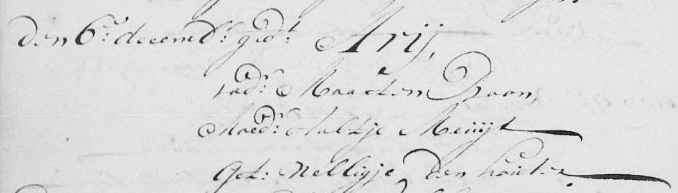 Den 6: decemb: ged:t Arij,
vad:r Maarten Boon
Moed:r Aaltje Meuijt
Get: Nelligje den houter